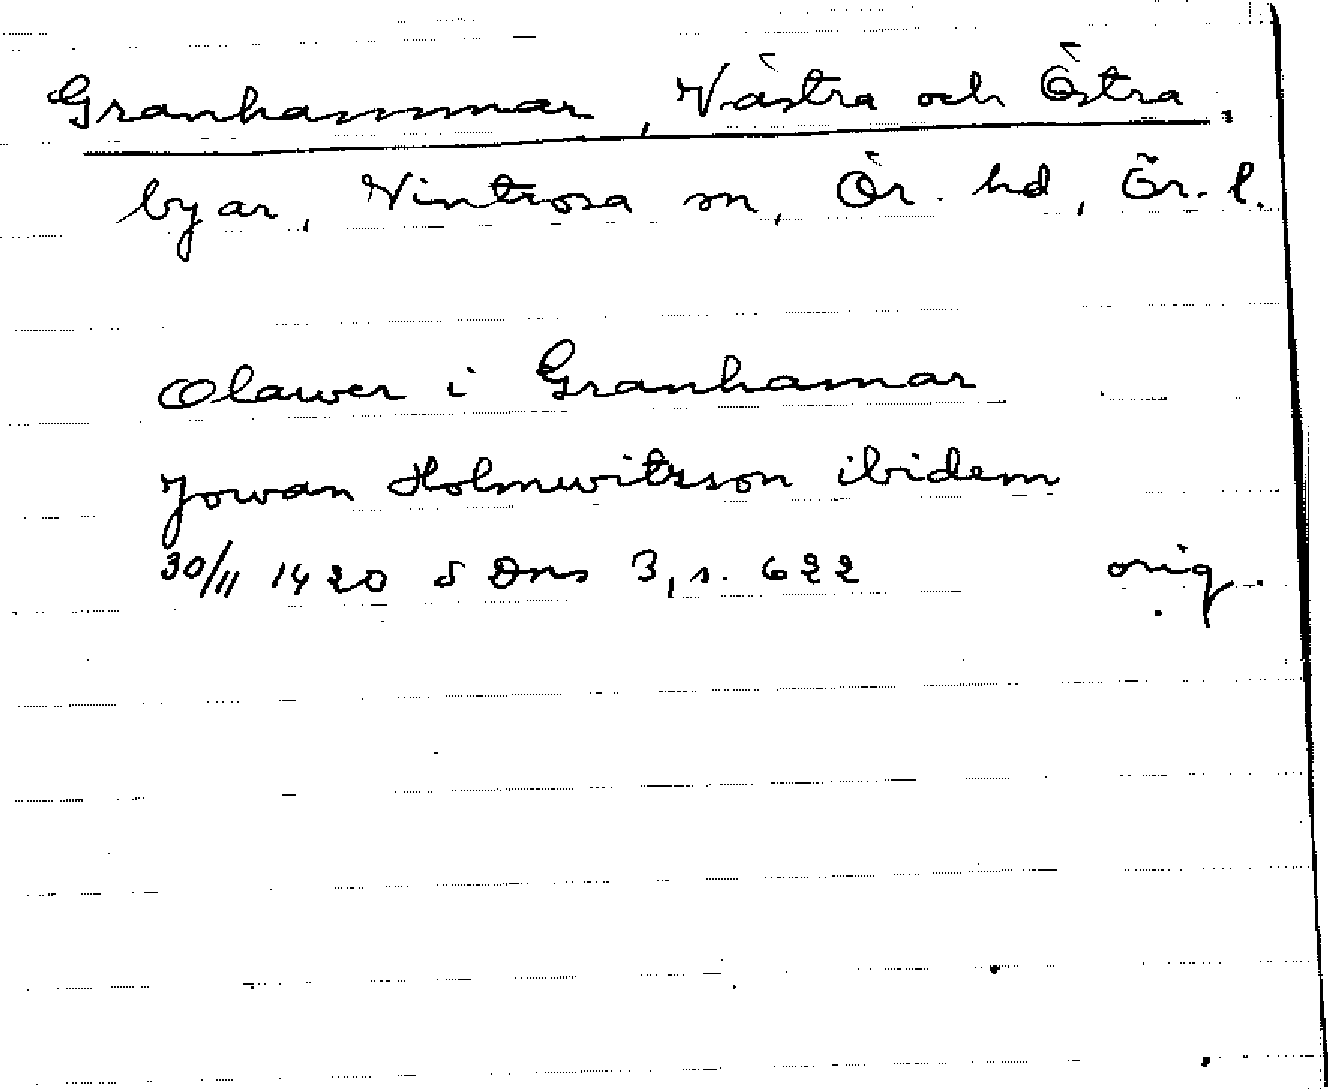 Granhammar, Västra och Östra,
byar, Vintrosa sn, Ör. hd, Ör. l.
Olawer i Granhamar
Jowan Holmwitsson ibidem
30/11 1420 SDns 3, s. 622 orig.